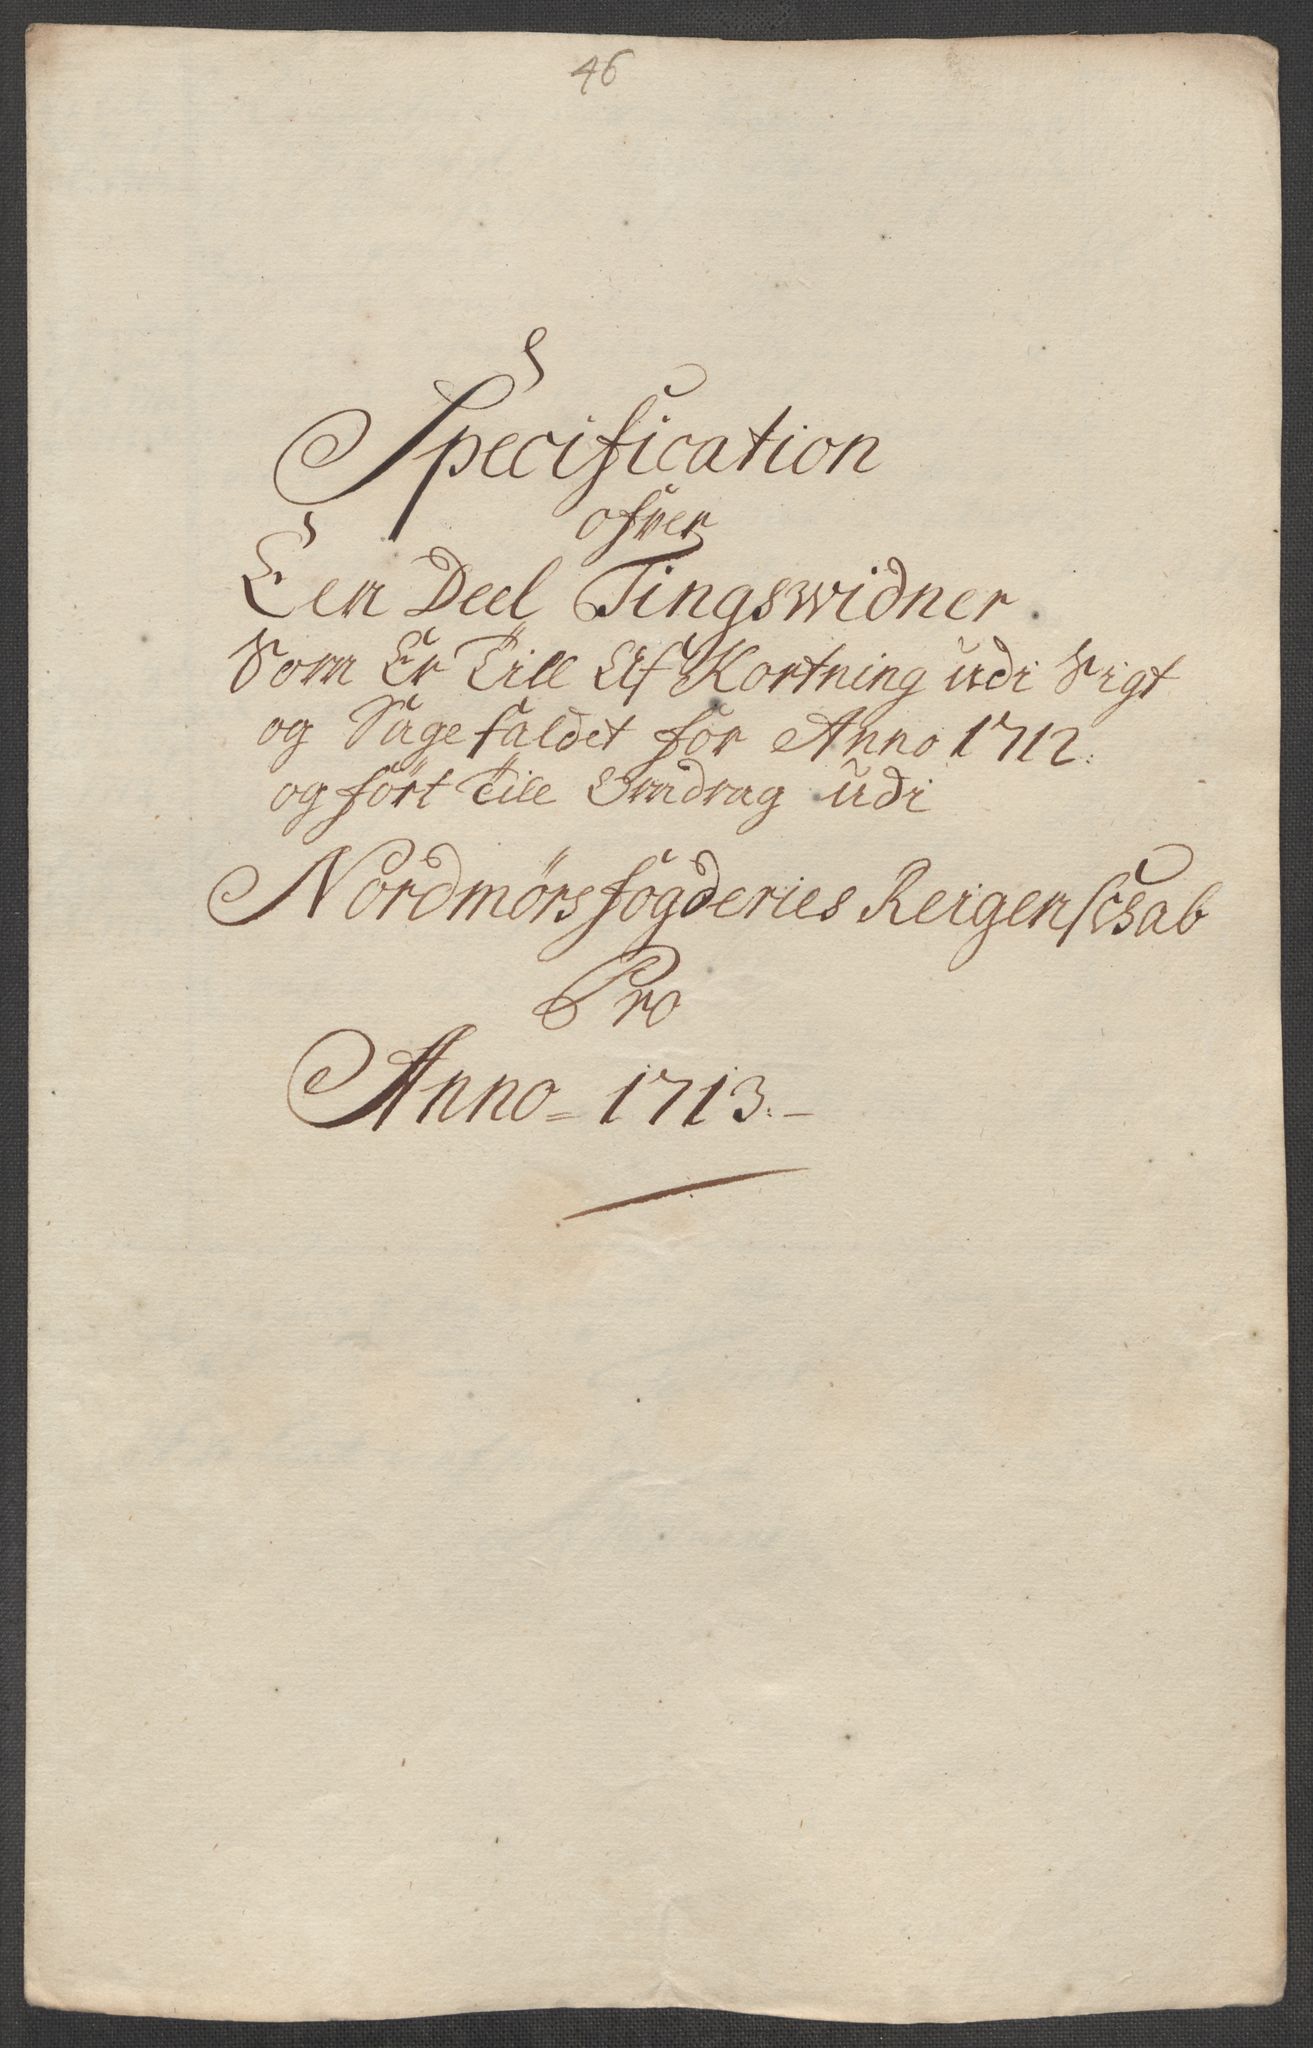 46
Specification
ofver
Een Deel Tingswidner
Som Er Till Af Kortning udi Sigt
og Sage faldet for Anno 1712.
og ført Till Omdrag udi
Nordmørs fogderies Reigenskab
Pro
Anno = 1713. –